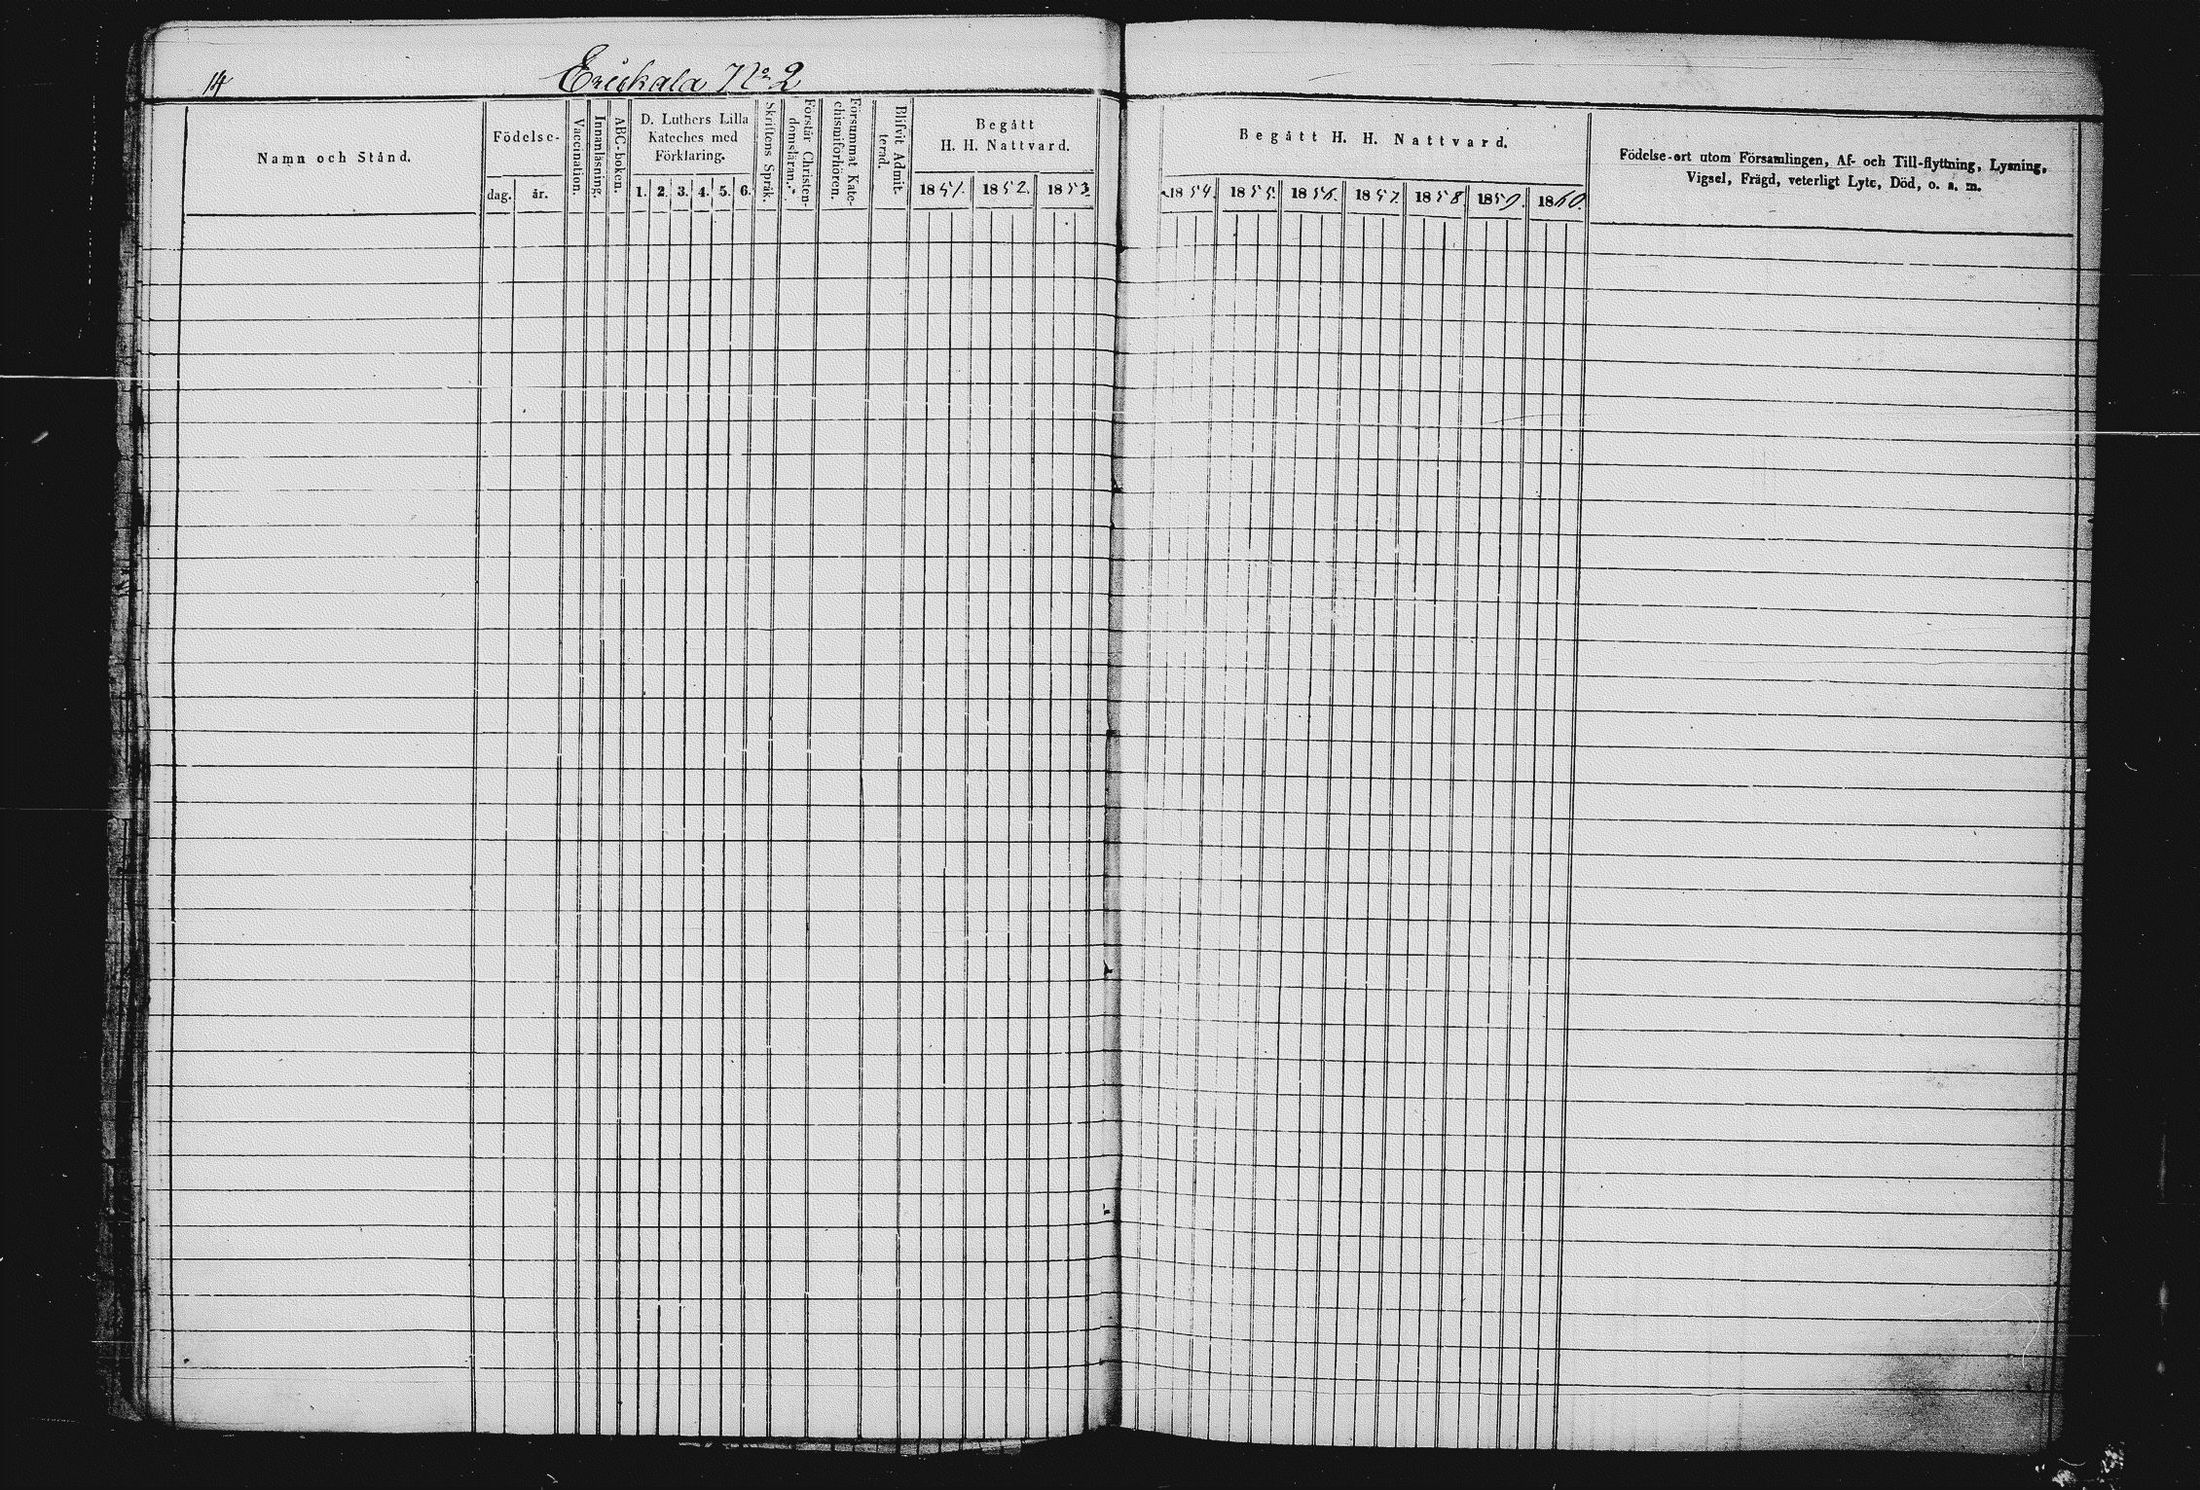 14
Erickala No 2
Namn och Stånd.
Födelse-
dag.
år.
Vaccination.
Innanläsning.
ABC-boken.
D. Luthers Lilla
Kateches med
Förklaring.
1. 2. 3. 4. 5. 6.
Skriftens Språk.
Förstår Christen-
domsläran.
Försummat Kate-
chismiförhören.
Blifvit Admit-
terad.
Begått
H. H. Nattvard.
1851. 1852. 1853
Begått H. H. Nattvard.
1854. 1855. 1856. 1857. 1858 1859. 1860.
Födelse-ort utom Församlingen, Af- och Till-flyttning, Lysning,
Vigsel, Frägd, veterligt Lyte, Död, o. s. m.